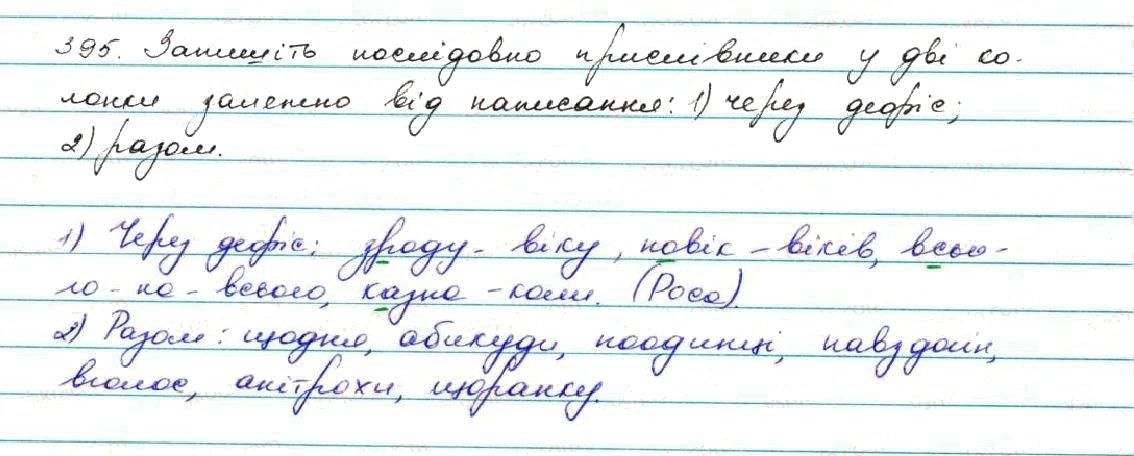 395. Запишіть послідовно прислівники у дві ко-
лонки залежно від написання: 1) через дефіс;
2) разом.
1) Через дефіс: зроду-віку, повік-віків, всьо-
го-на-всього, казна-коли. (Роса)
2) Разом: щодня, абикуди, поодинці, навздогін,
вголос, анітрохи, щоранку.